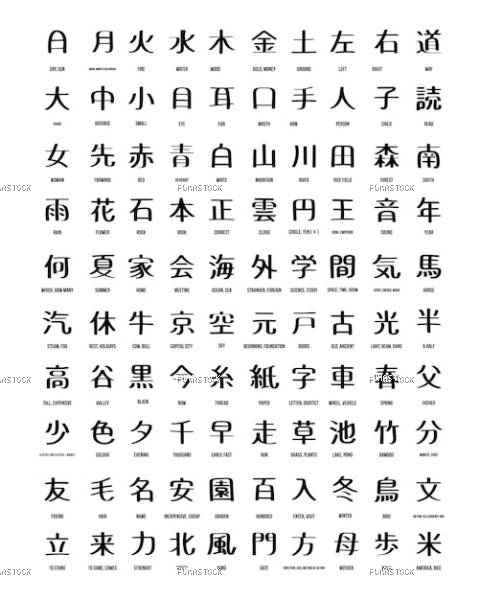 日 月 火 水 木 金 土 左 右 道
DAY, SUN FIRE WATER WOOD GOLD, MONEY GROUND LEFT RIGHT WAY
大 中 小 目 耳 口 手 人 子 読
SMALL EYE EAR MOUTH PERSON CHILD READ
女 先 赤 青 白 山 川 田 森 南
WOMAN FORWARD RED WHITE MOUNTAIN RIVER RICE FIELD FOREST SOUTH
雨 花 石 本 正 雲 円 王 音 年
RAIN FLOWER ROCK BOOK CORRECT CLOUD SOUND YEAR
何 夏 家 会 海 外 学 間 気 馬
WHICH, HOW MANY SUMMER HOME MEETING OCEAN, SEA STRANGER, FOREIGN SCIENCE, STUDY SPACE, TIME, ROOM HORSE
汽 休 牛 京 空 元 戸 古 光 半
STEAM, FOG REST, HOLIDAYS COW, BULL CAPITAL CITY SKY BEGINNING, FOUNDATION DOORS OLD, ANCIENT A HALF
高 谷 黒 今 糸 紙 字 車 春 父
TALL, EXPENSIVE VALLEY BLACK NOW THREAD PAPER WHEEL, VEHICLE SPRING FATHER
少 色 夕 千 早 走 草 池 竹 分
COLOUR EVENING THOUSAND EARLY, FAST RUN GRASS, PLANTS LAKE, POND BAMBOO
友 毛 名 安 園 百 入 冬 鳥 文
FRIEND HAIR NAME INEXPENSIVE, CHEAP GARDEN HUNDRED ENTER, VISIT WINTER BIRD
立 来 力 北 風 門 方 母 歩 米
TO STAND TO COME, COMES STRENGHT WIND GATE MOTHER AMERICA, RICE